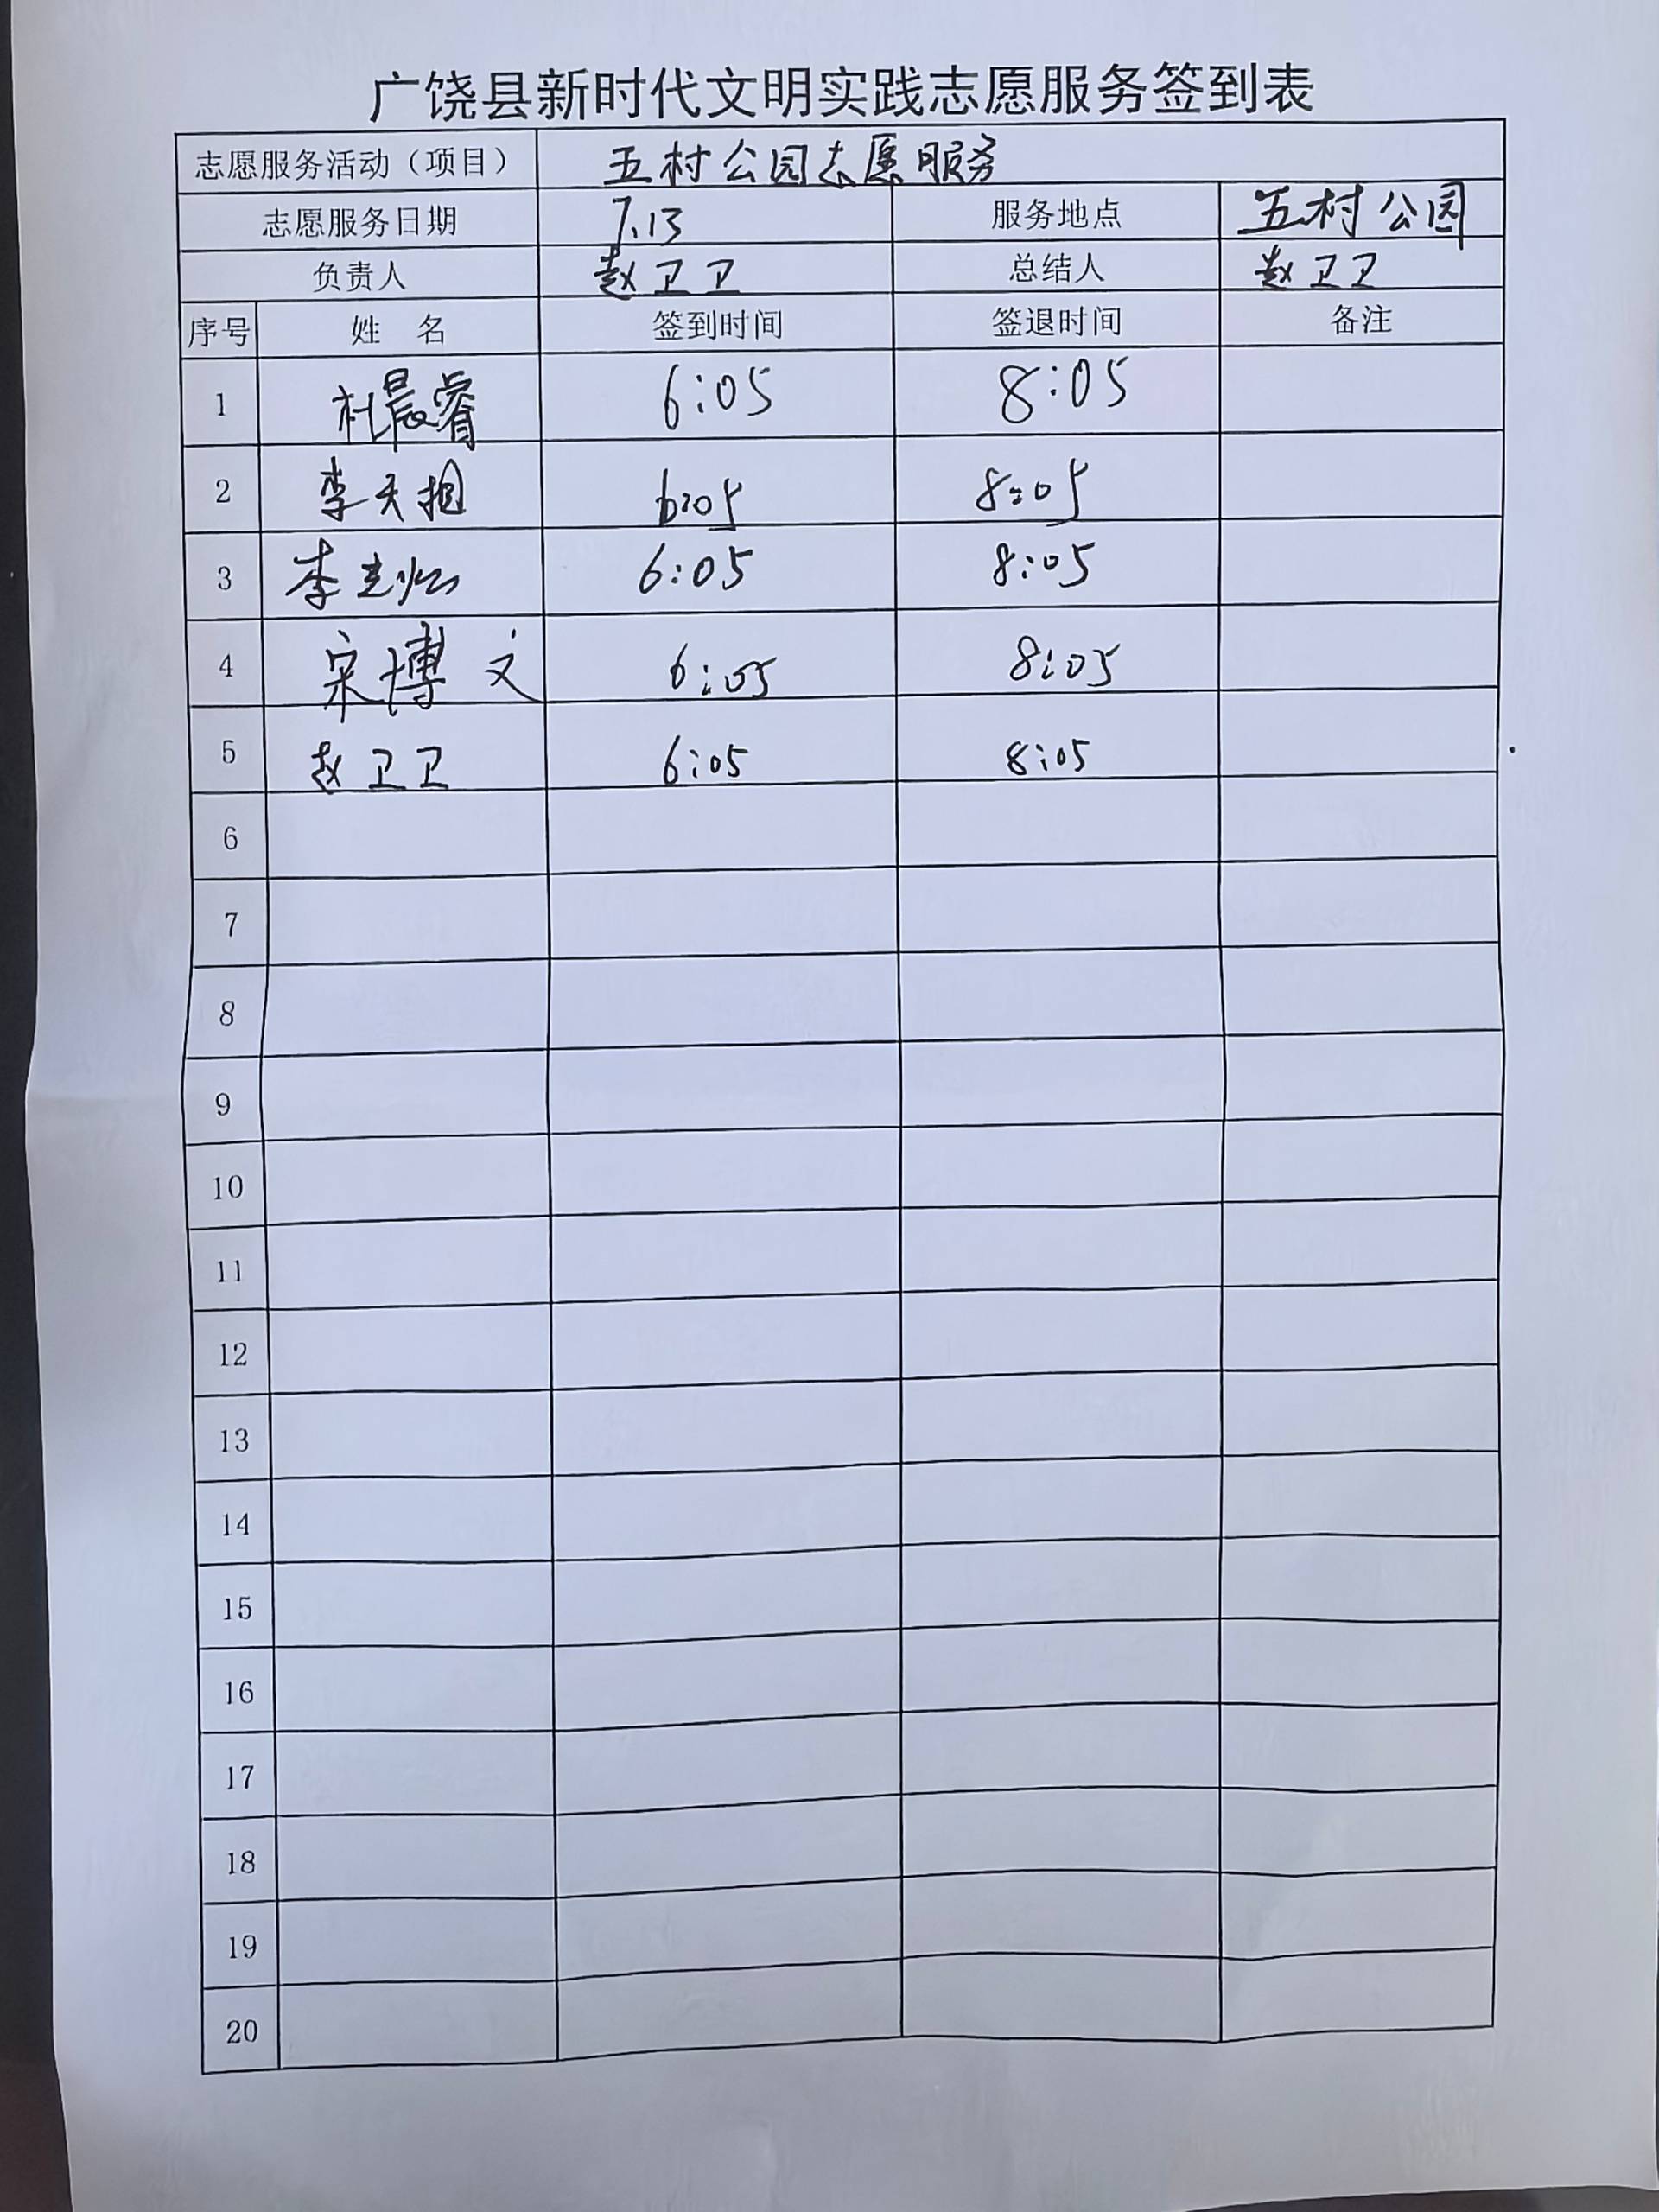 广饶县新时代文明实践志愿服务签到表
志愿服务活动（项目） 五村公园志愿服务
志愿服务日期 7.13 服务地点 五村公园
负责人 赵卫卫 总结人 赵卫卫
序号 姓 名 签到时间 签退时间 备注
1 杜晨睿 6:05 8:05
2 李天 6:05 8:05
3 李 6:05 8:05
4 宋博文 6:05 8:05
5 赵卫卫 6:05 8:05
6
7
8
9
10
11
12
13
14
15
16
17
18
19
20